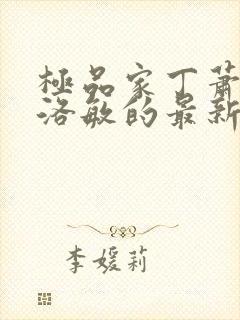 極品家丁蕭
洛敏的最新
李媛莉